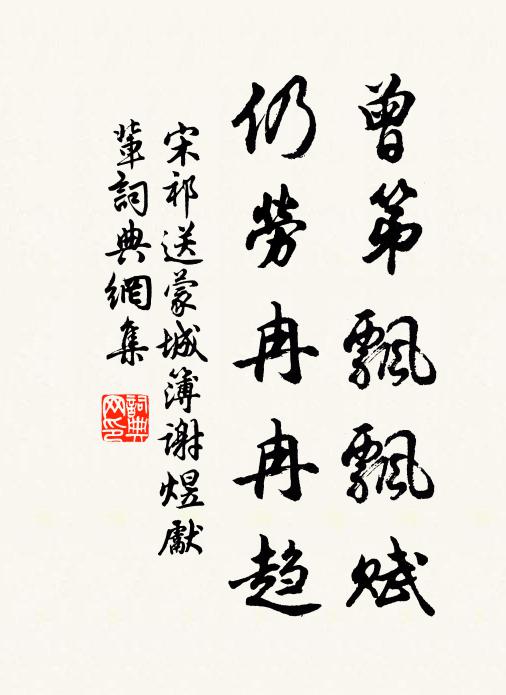 曾第飄飄賦
仍勞冉冉趨
宋祁送蒙城簿謝煜獻
輩詞典網集
詞典網印